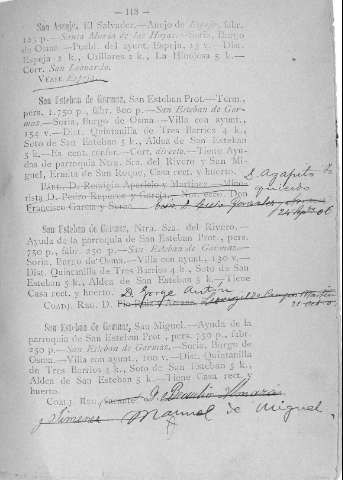 — 113 —
San Asenjo, El Salvador.—Anejo de Espeja, fabr.
125 p.—Santa María de las Hoyas.—Soria, Burgo
de Osma.—Puebl. del ayunt. Espeja, 13 v.—Dist.
Espeja 2 k., Orillares 2 k., La Hinojosa 5 k.—
Corr. San Leonardo.
Véase Espeja.
San Esteban de Gormaz, San Esteban Prot.—Térm.,
pers. 1.750 p., fabr. 800 p.—San Esteban de Gor-
maz.—Soria, Burgo de Osma.—Villa con ayunt.,
154 v.—Dist. Quintanilla de Tres Barrios 4 k.,
Soto de San Esteban 5 k., Aldea de San Esteban
5 k.—Es cent. confer.—Corr. directa.—Tiene Ayu-
das de parroquia Ntra. Sra. del Rivero y San Mi-
guel, Ermita de San Roque, Casa rect. y huerto.
Párr. D. Remigio Aparicio y Martínez
D. Agapito
rista D. Pedro
Francisco García y
San Esteban de Gormaz, Ntra. Sra. del Rivero.—
Ayuda de la parroquia de San Esteban Prot., pers.
750 p., fabr. 250 p.—San Esteban de Gormaz.—
Soria, Burgo de Osma.—Villa con ayunt., 130 v.—
Dist. Quintanilla de Tres Barrios 4 k., Soto de San
Esteban 5 k., Aldea de San Esteban 5 k.—Tiene
Casa rect. y huerto. D. Jorge Antón
Coadj. Reg. D.
San Esteban de Gormaz, San Miguel.—Ayuda de la
parroquia de San Esteban Prot., pers. 750 p., fabr.
250 p.—San Esteban de Gormaz.—Soria, Burgo de
Osma.—Villa con ayunt., 100 v.—Dist. Quintanilla
de Tres Barrios 4 k., Soto de San Esteban 5 k.,
Aldea de San Esteban 5 k.—Tiene Casa rect. y
huerto.
Coadj. Reg.
y Jimenez Manuel de Miguel